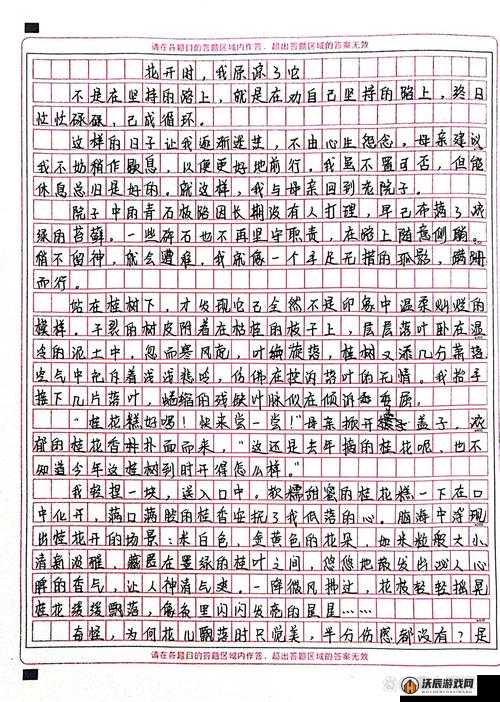 请在各题目的答题区域内作答，超出答题区域的答案无效
花开时，我原谅了它
不是在坚持的路上，就是在劝自己坚持的路上，终日
忙忙碌碌，已成循环。
这样的日子让我逐渐迷茫，不由心生怨念。母亲建议
我不妨稍作歇息，以便更好地前行。我虽不置可否，但能
休息总归是好的。就这样，我与母亲回到老院子。
院子中的青石板路因长期没有人打理，早已布落了浓
绿的苔藓。一些碎石也不再坚守职责，在路上随意侧翻。
稍不留神，就会遭难，我就像一个手足无措的孤影，蹒跚
而行。
站在桂树下，才发现它已全然不是印象中温柔灿烂的
模样。干裂的树皮附着在枯程的枝子上，层层落叶卧在湿
冷的泥土中，忽而寒风起，叶编旋落，桂树又添几分萧落
空气中充斥着浅浅悲吟，仿佛在控诉落叶的无情。我抬手
接下几片落叶，蜷缩的残缺叶脉似在倾诉
“桂花糕好咯！快来尝一尝！”母亲掀开盖子，浓
郁的桂花香扑扑面而来，“这还是去年摘的桂花呢，也不
知道今年这桂树到时开得怎么样。”
我轻捏一块，送入口中。软糯甜蜜的桂花糕一下在口
中化开，满口满腔的桂香安抚了我低落的心。脑海中浮现
出桂花开的场景：米白色，金黄色的花朵，如米粒般大小
清新淡雅，藏匿在墨绿的桂叶之间，悠悠地散发出沁人心
脾的香气，让人神清气爽。一阵微风拂过，花枝轻轻摇晃
桂花缓缓飘落，像夜里闪闪发亮的星星……
奇怪，为何花儿飘落时只觉美，半分伤感都没有？是
请在各题目的答题区域内作答，超出答题区域的答案无效
沃辰游戏网